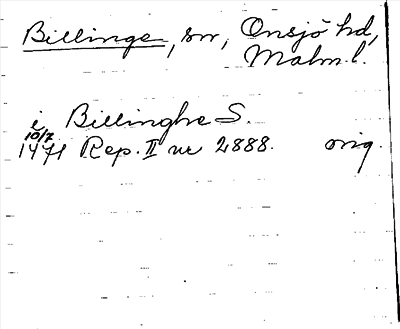 Billinge, sn, Onsjö hd,
Malm. l.
i Billinghe S.
10/7
1471 Rep. II nr 2888. orig.